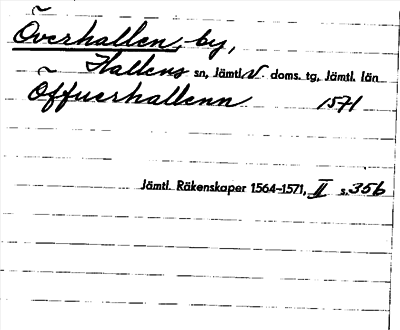 Överhallen, by,
Hallens sn, Jämtl. V. doms. tg, Jämtl. län
Öffuerhallenn 1571
Jämtl. Räkenskaper 1564-1571, II s. 356